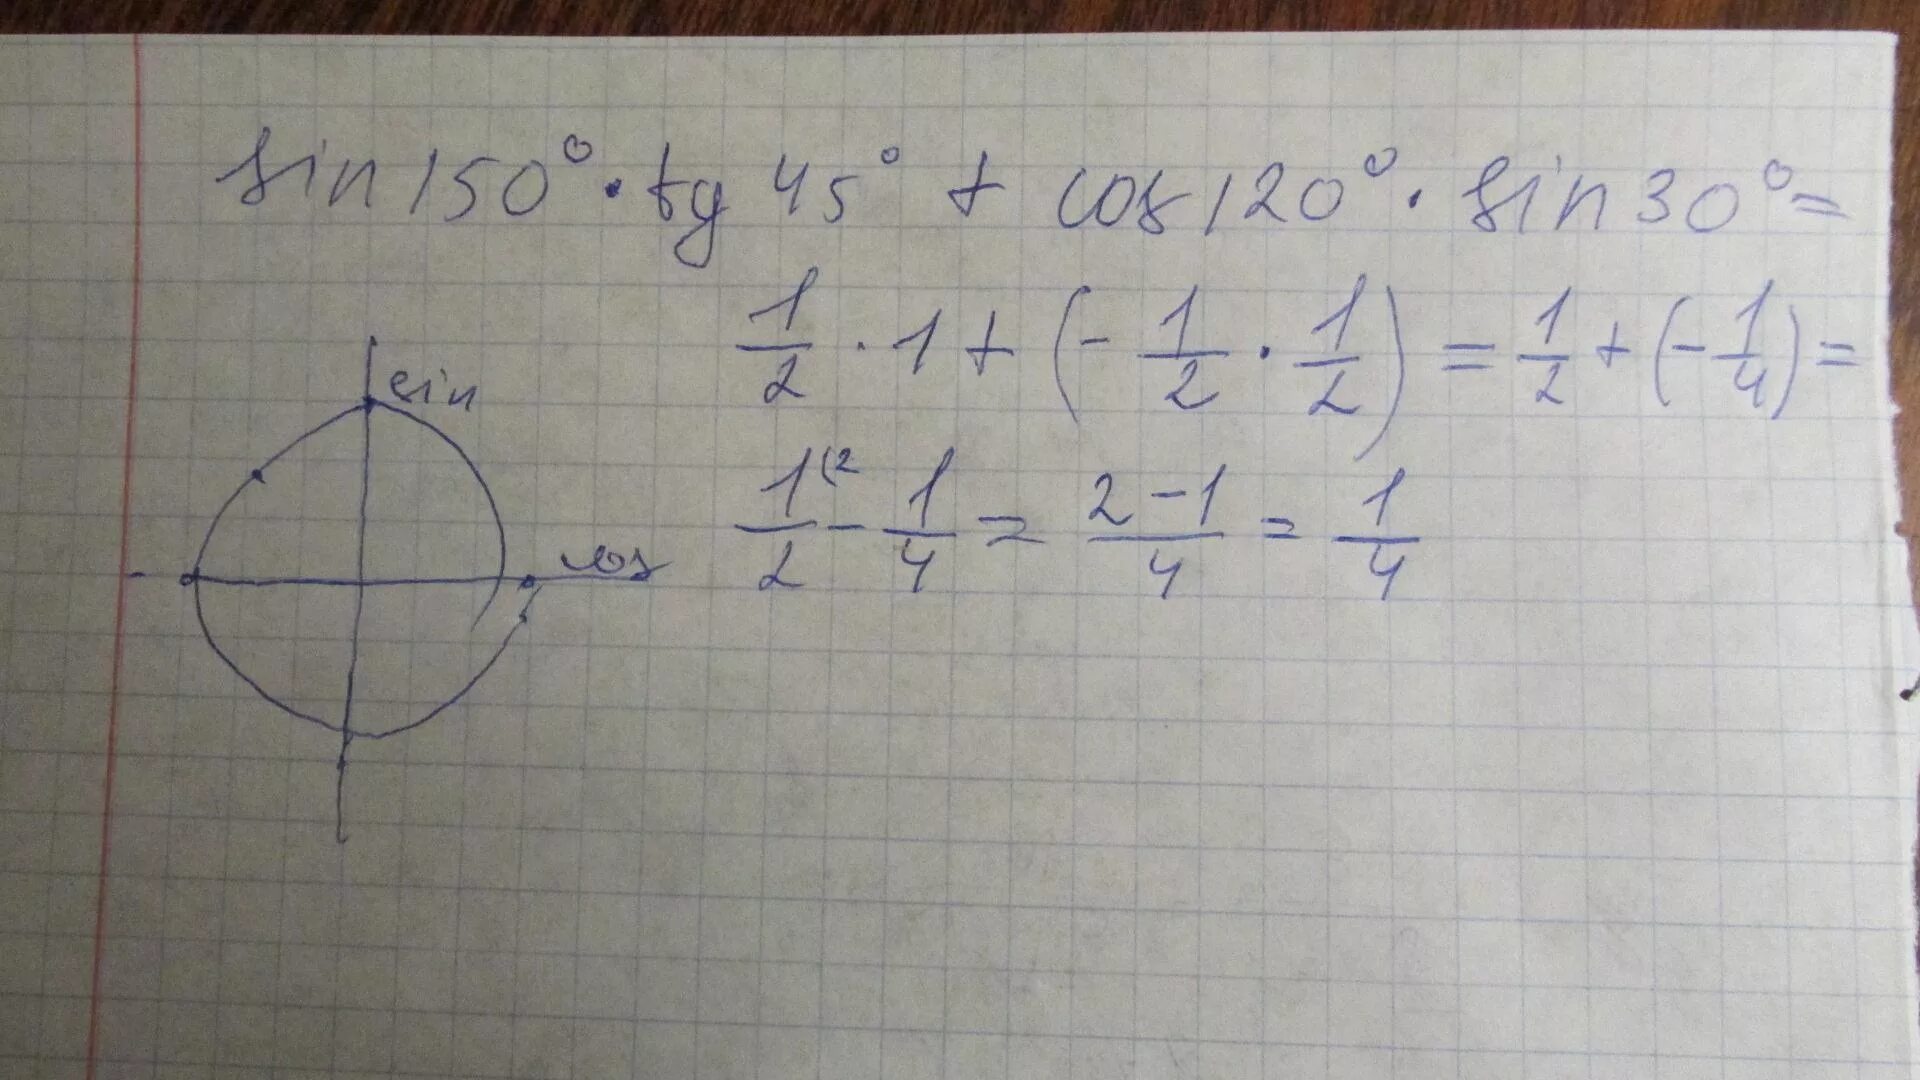 sin 150° · tg 45° + cos 120° · sin 30° =
1/2 · 1 + (- 1/2 · 1/2) = 1/2 + (- 1/4) =
1/2 (2 - 1/4 = 2 - 1/4 = 1/4
sin
cos